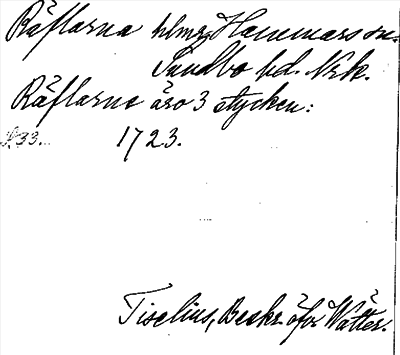 Räflarna holmar, Hammars sn.
Sundbo hd. Nrk.
Räflarne äro 3 stycken:
S. 33... 1723.
Tiselius, Beskr. öfer Wätter.